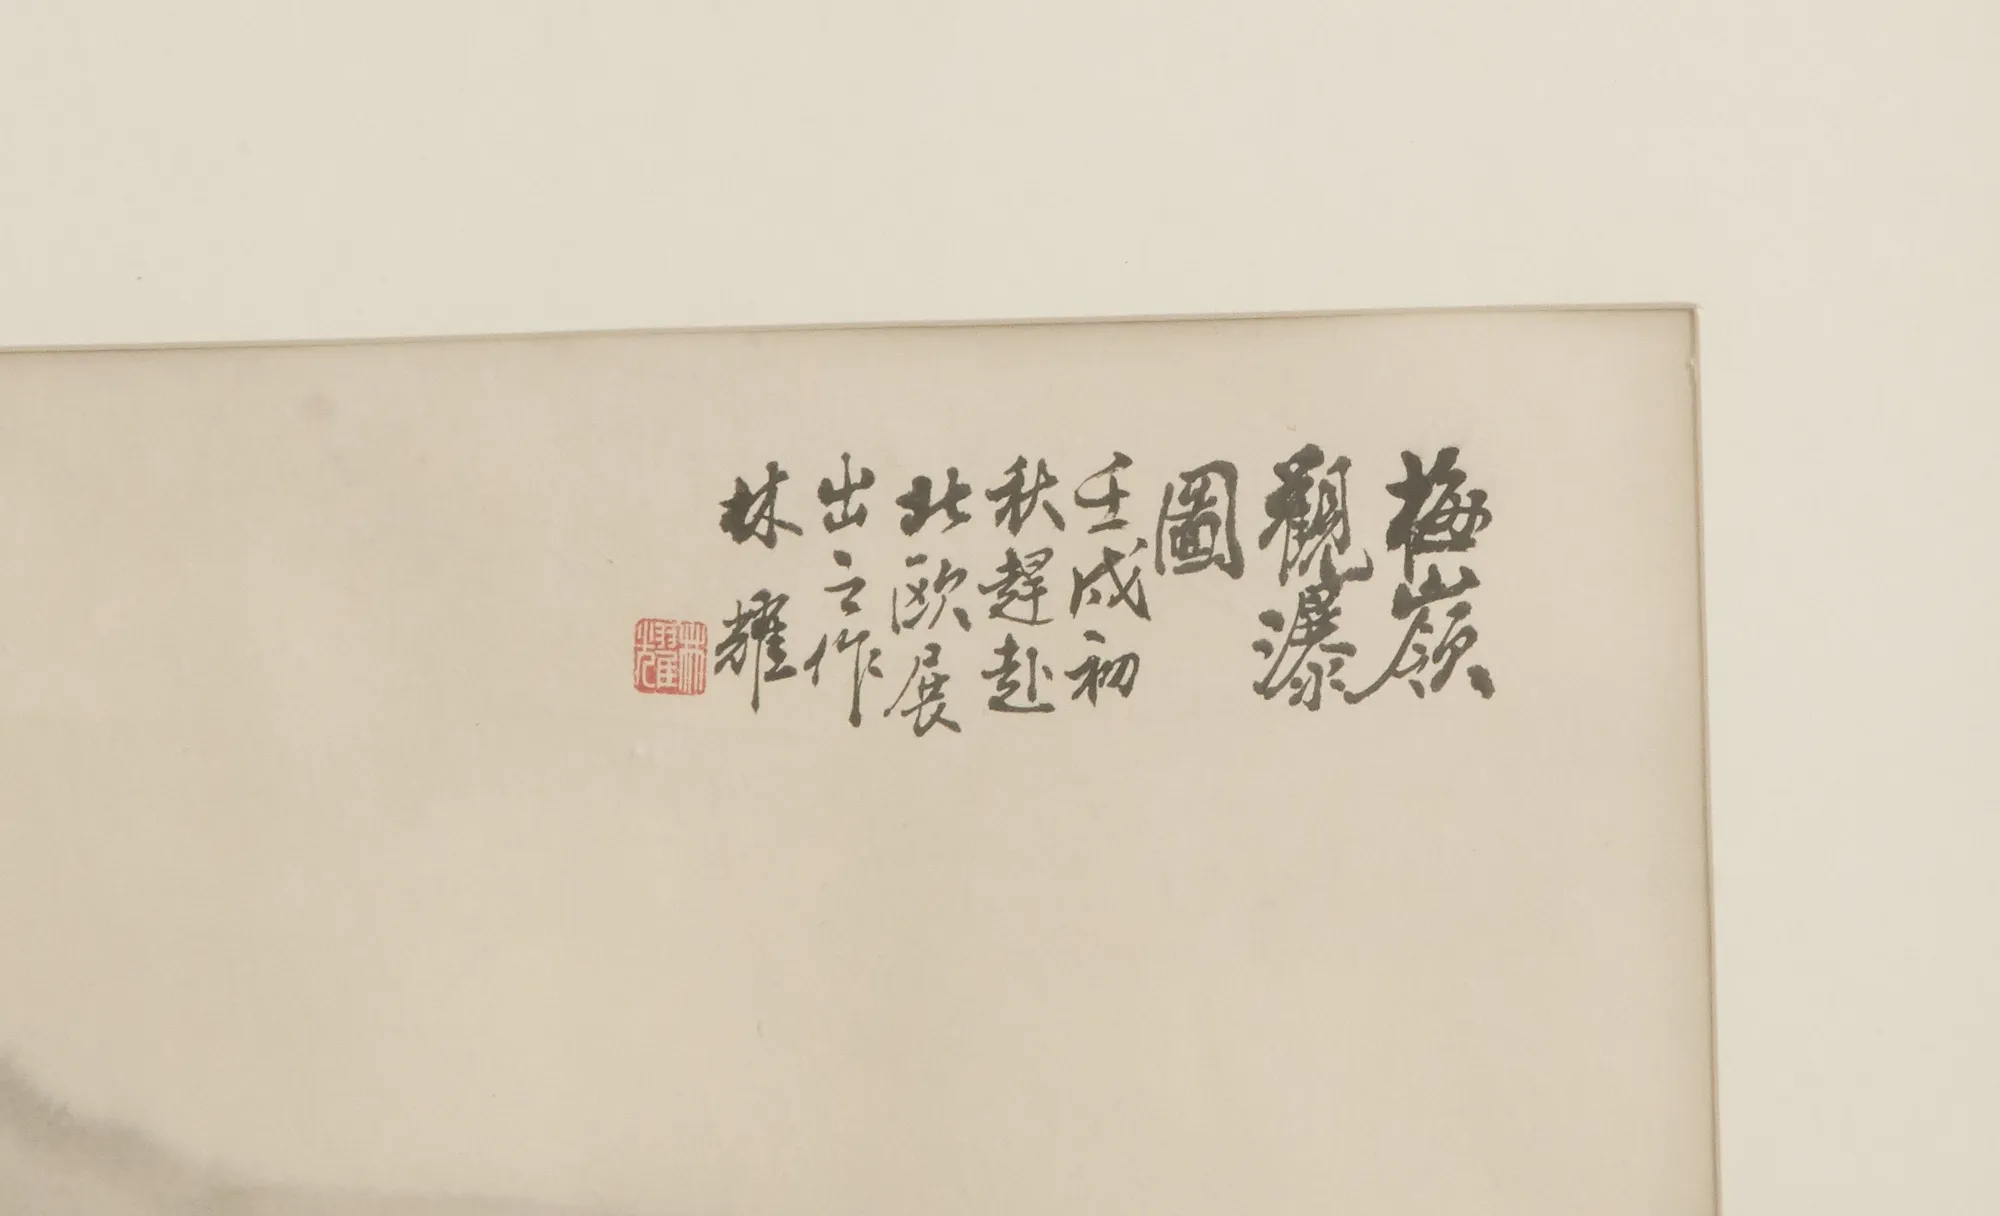 梅嶺
觀瀑
圖
壬戌初
秋趕赴
北欧展
出之作
林耀
林耀